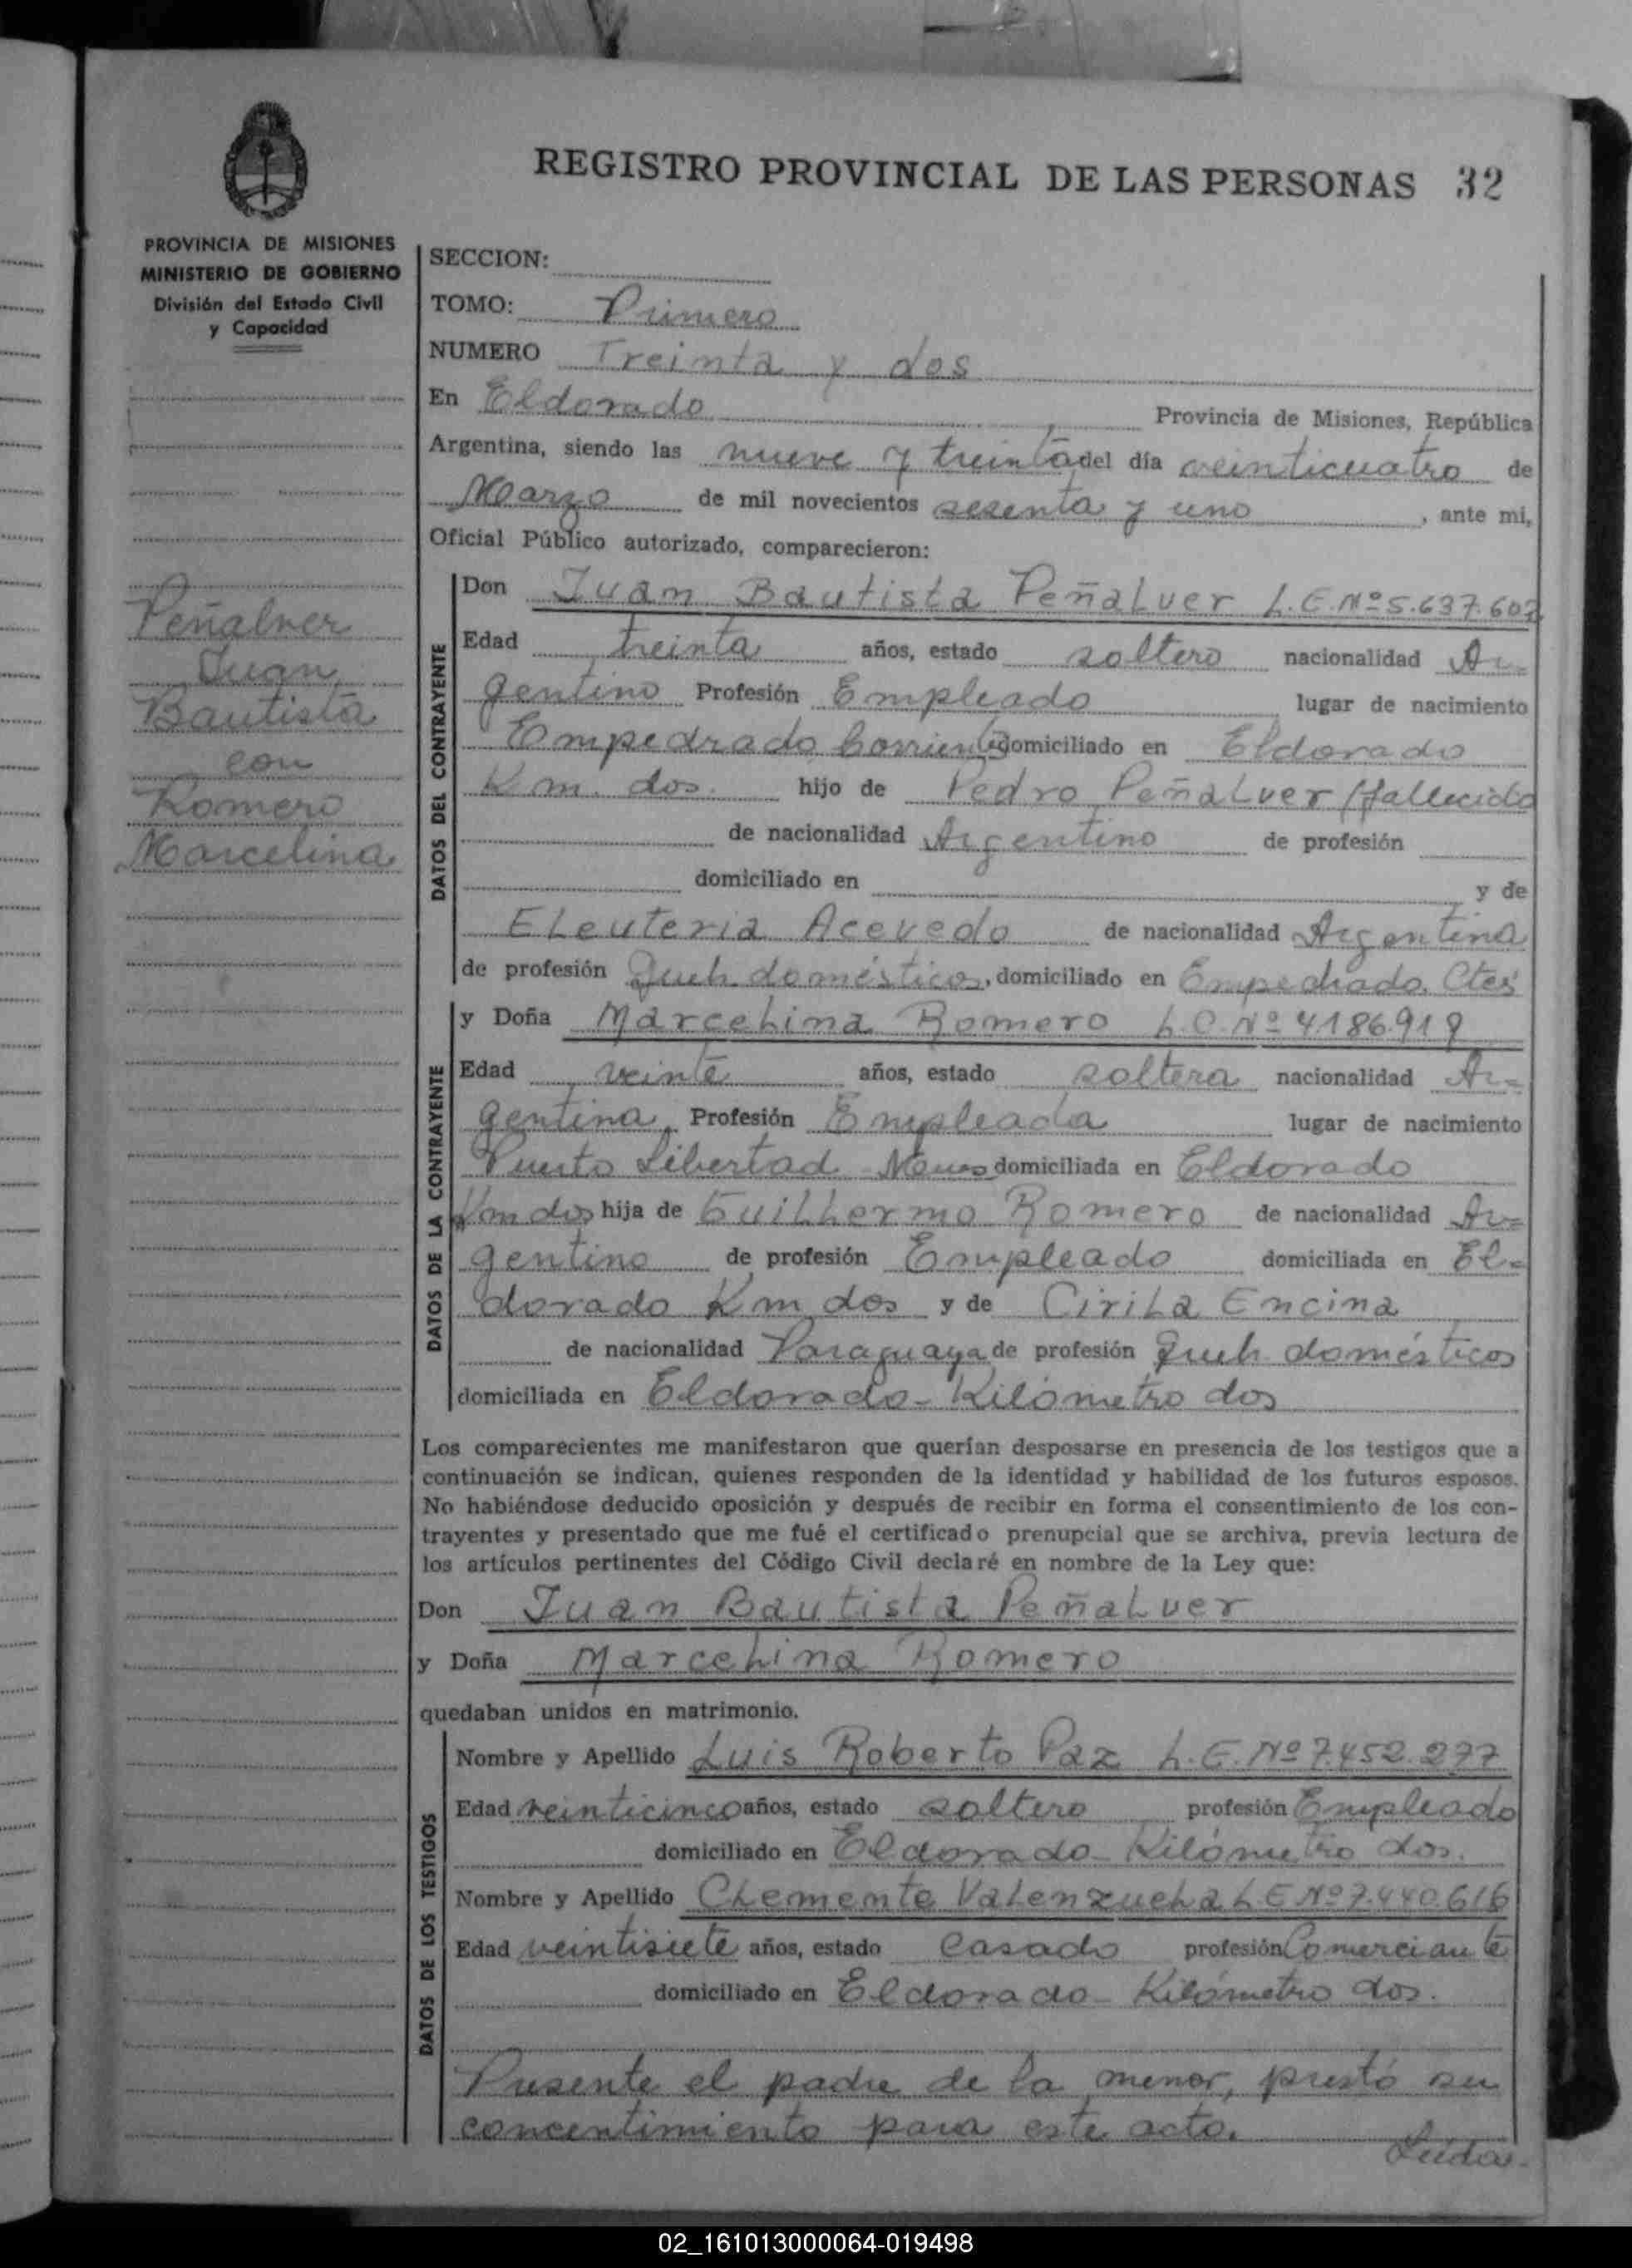 REGISTRO PROVINCIAL DE LAS PERSONAS 32
PROVINCIA DE MISIONES
MINISTERIO DE GOBIERNO
División del Estado Civil
y Capacidad
Peñalver
Juan
Bautista
con
Romero
Marcelina
SECCION:
TOMO: Primero
NUMERO Treinta y dos
En Eldorado Provincia de Misiones, República
Argentina, siendo las nueve y treinta del día veinticuatro de
Marzo de mil novecientos sesenta y uno, ante mi,
Oficial Público autorizado, comparecieron:
DATOS DEL CONTRAYENTE
Don Juan Bautista Peñalver L.E. Nº 5.637.607
Edad treinta años, estado soltero nacionalidad Ar=
gentino Profesión Empleado lugar de nacimiento
Empedrado Corrientes domiciliado en Eldorado
Km. dos. hijo de Pedro Peñalver (fallecido
de nacionalidad Argentino de profesión
domiciliado en y de
Eleuteria Acevedo de nacionalidad Argentina
de profesión Queh. domésticos, domiciliado en Empedrado. Ctes
DATOS DE LA CONTRAYENTE
y Doña Marcelina Romero L.C. Nº 4.186.919
Edad veinte años, estado soltera nacionalidad Ar=
gentina Profesión Empleada lugar de nacimiento
Puerto Libertad domiciliada en Eldorado
Km dos hija de Guillermo Romero de nacionalidad Ar=
gentino de profesión Empleado domiciliada en El=
dorado Km dos y de Cirila Encina
de nacionalidad Paraguaya de profesión Queh. domésticos
domiciliada en Eldorado- Kilómetro dos
Los comparecientes me manifestaron que querían desposarse en presencia de los testigos que a
continuación se indican, quienes responden de la identidad y habilidad de los futuros esposos.
No habiéndose deducido oposición y después de recibir en forma el consentimiento de los con-
trayentes y presentado que me fué el certificado prenupcial que se archiva, previa lectura de
los artículos pertinentes del Código Civil declaré en nombre de la Ley que:
Don Juan Bautista Peñalver
y Doña Marcelina Romero
quedaban unidos en matrimonio.
DATOS DE LOS TESTIGOS
Nombre y Apellido Luis Roberto Paz L.E. Nº 7.452.277
Edad veinticinco años, estado soltero profesión Empleado
domiciliado en Eldorado- Kilómetro dos.
Nombre y Apellido Clemente Valenzuela L.E Nº 7.440.616
Edad veintisiete años, estado casado profesión Comerciante
domiciliado en Eldorado- Kilómetro dos.
Presente el padre de la menor, prestó su
concentimiento para este acto.
Leída-
02_161013000064-019498